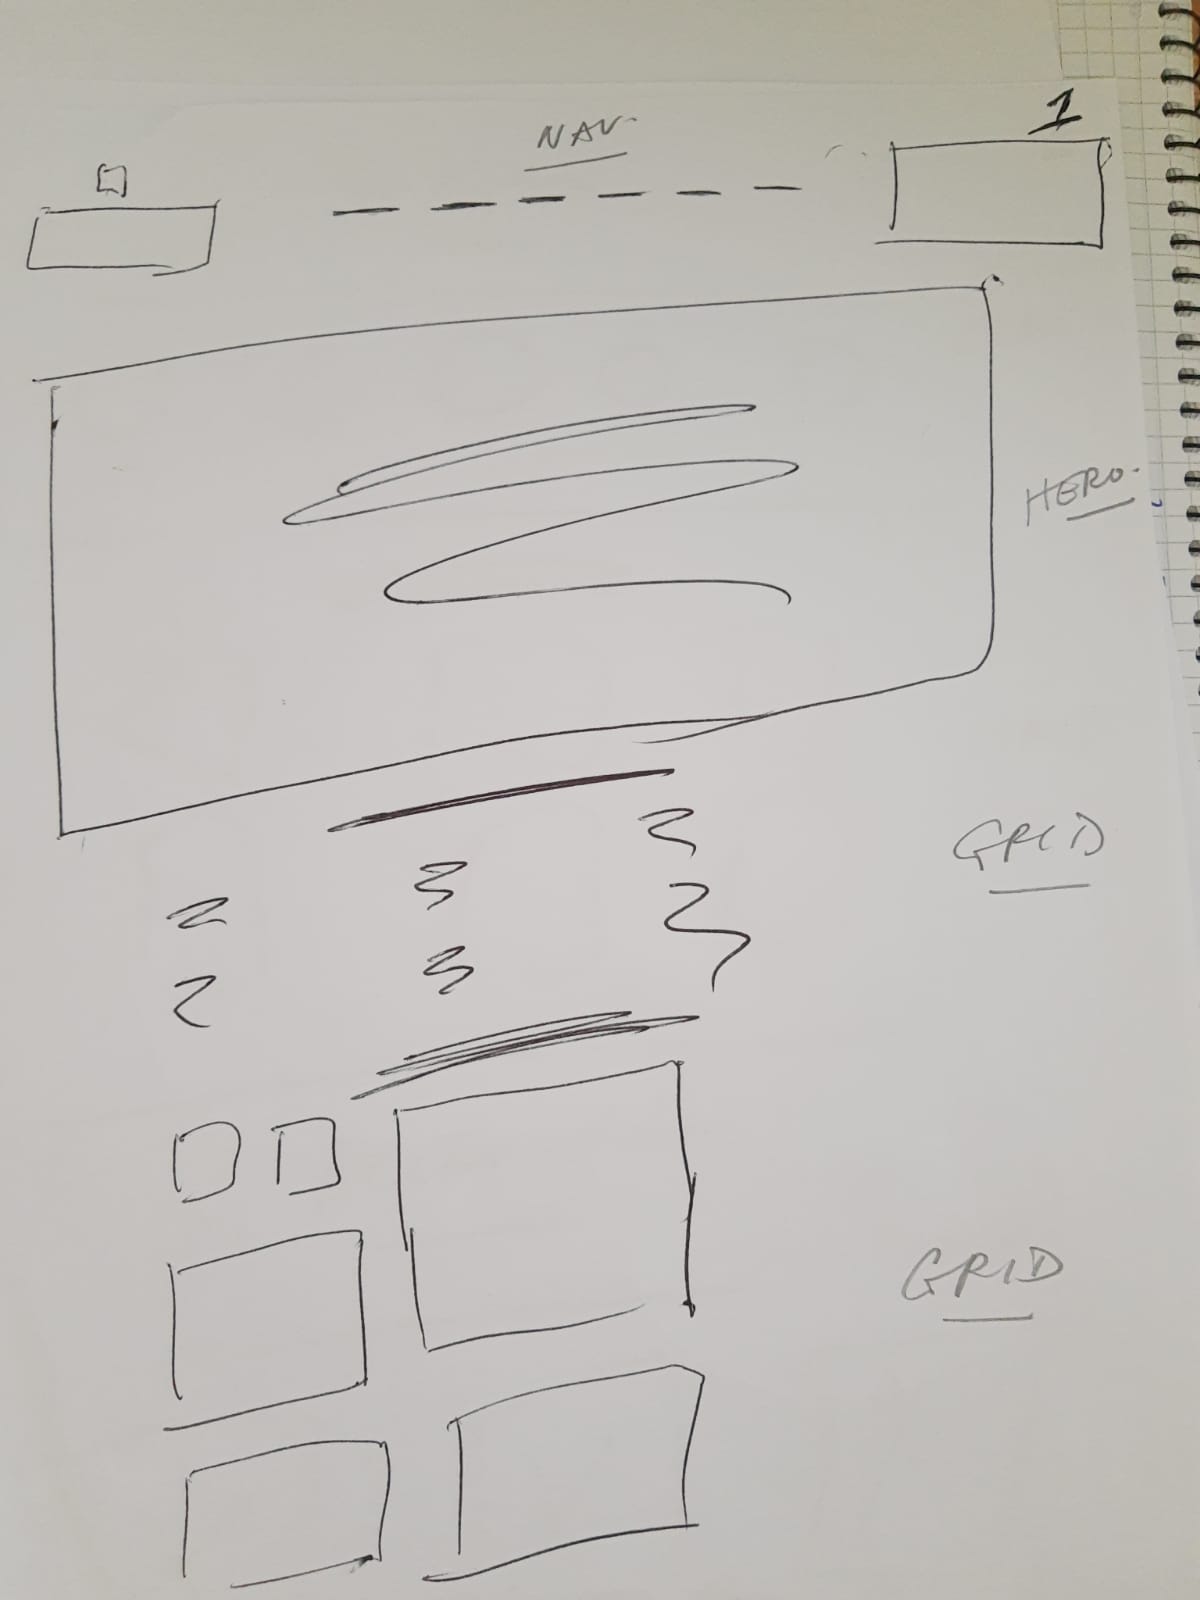 1
NAV.
HERO.
GRID
GRID